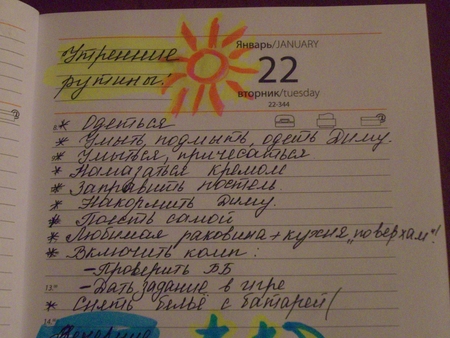 Утренние
рутины!
Январь/JANUARY
22
вторник/tuesday
22-344
* Одеться
* Умыть, подмыть, одеть Диму.
* Умыться, причесаться
* Намазаться кремом
* Заправить постель.
* Накормить Диму.
* Поесть самой
* Любимая раковина + кухня „поверхам"!
* Включить комп:
- Проверить ББ
13.00
- Дать задание в игре
* Снять бельё с батарей(
Вечерние